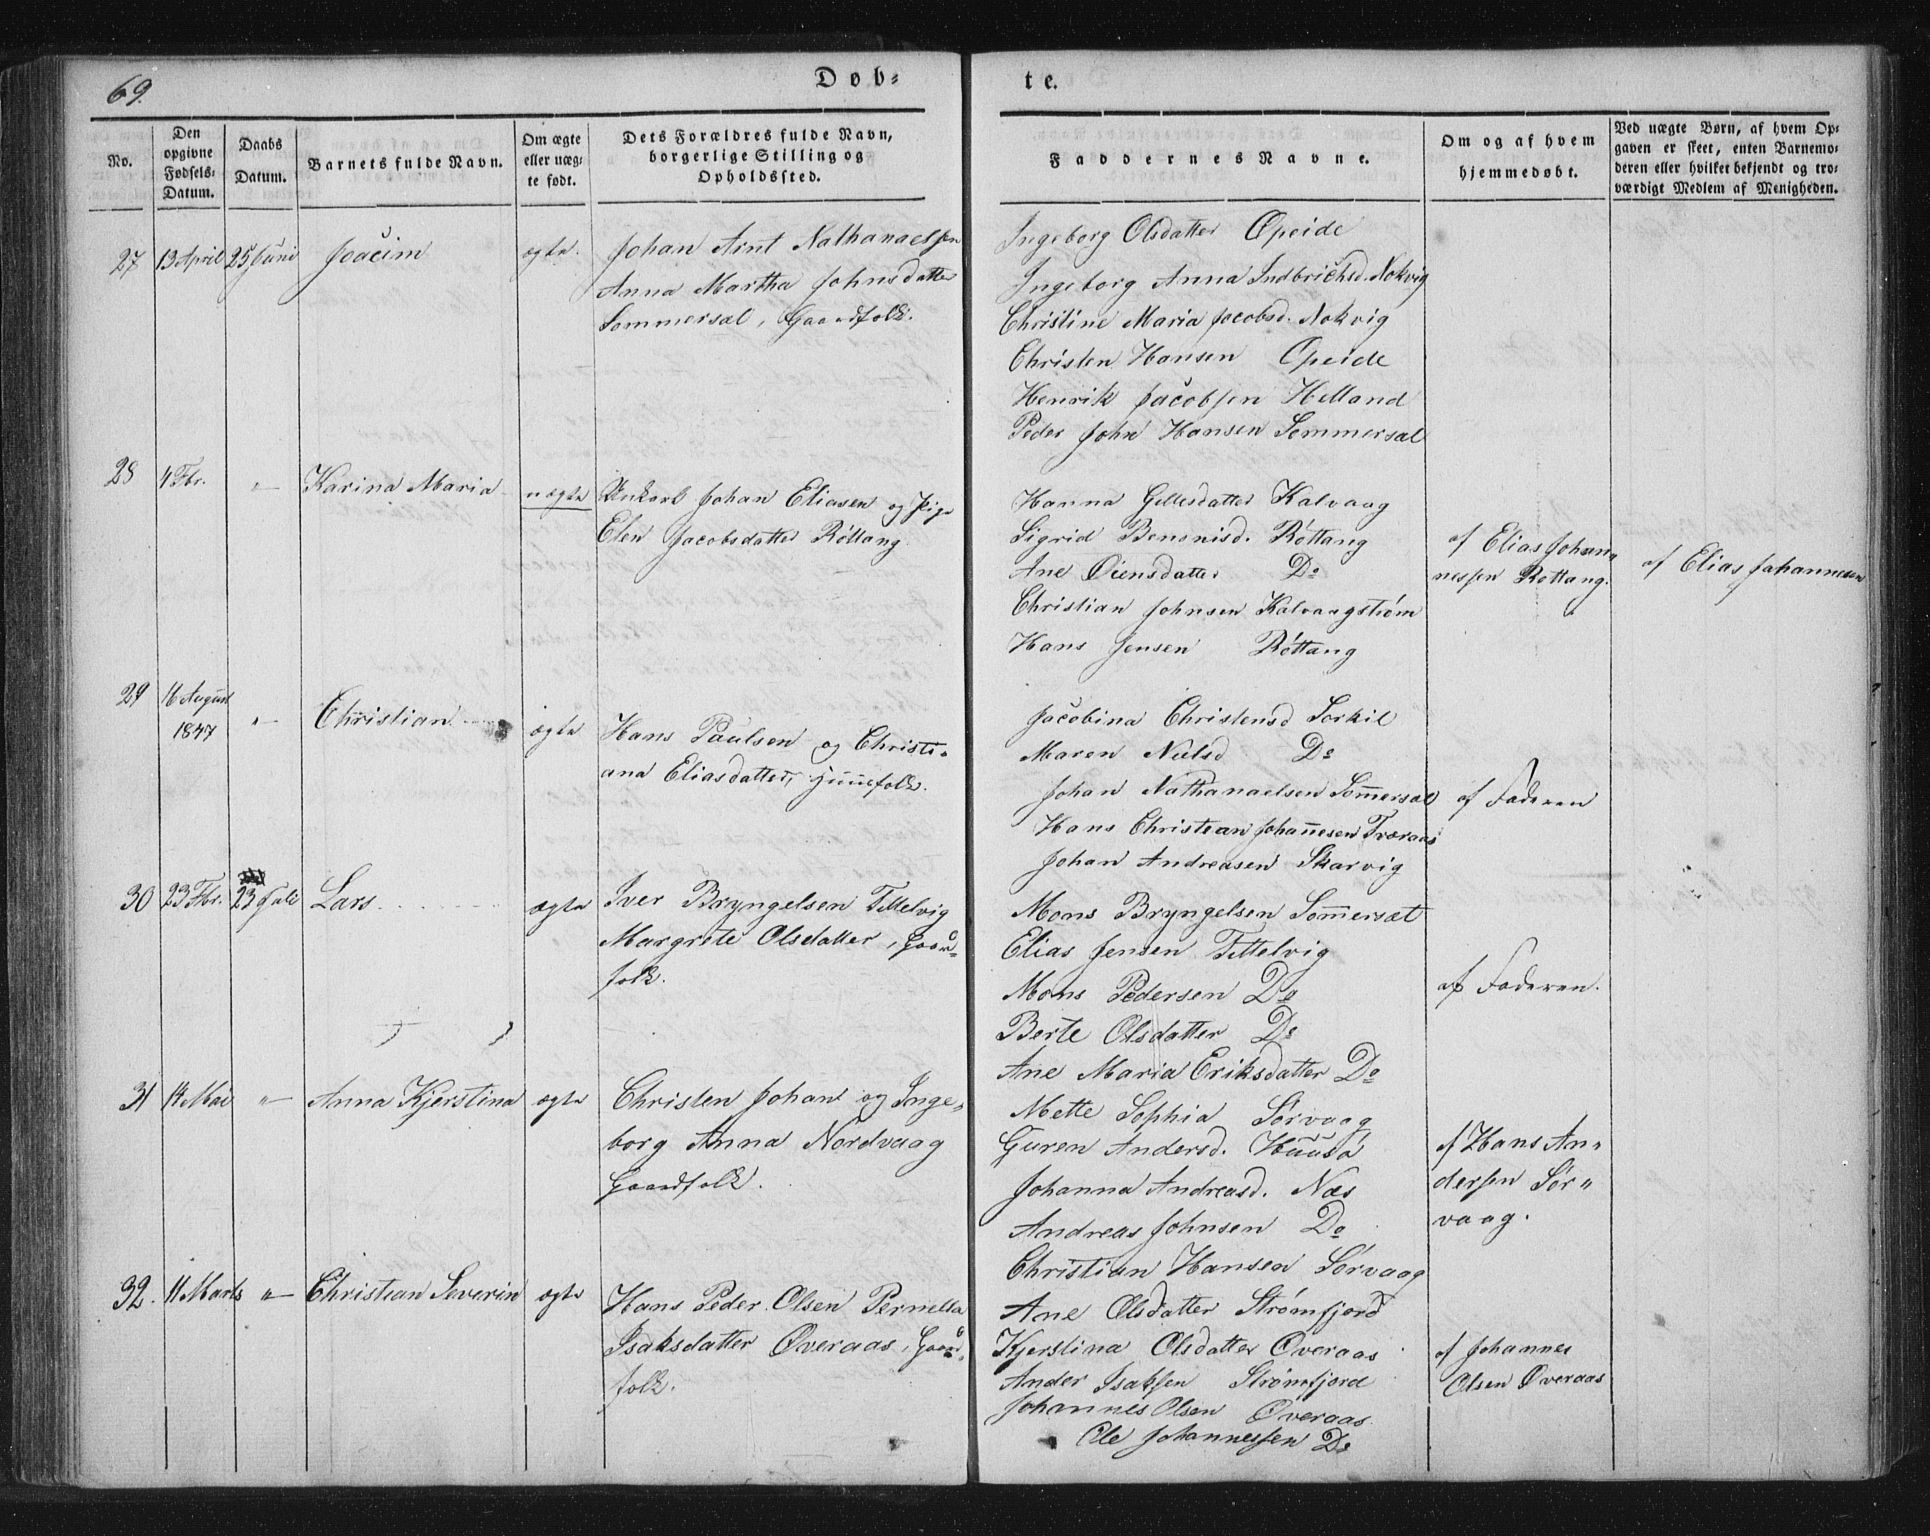 69.
Døb-
te.
No.
Den
opgivne
Fødsels-
Datum.
Daabs
Datum.
Barnets fulde Navn.
Om ægte
eller uæg-
te født.
Dets Forældres fulde Navn,
borgerlige Stilling og
Opholdssted.
Faddernes Navne.
Om og af hvem
hjemmedøbt.
Ved uægte Børn, af hvem Op-
gaven er skeet, enten Barnemo-
deren eller hvilket bekjendt og tro-
værdigt Medlem af Menigheden.
27 13 April 25 Juni Joacim ægte.
Johan Arnt Nathanaelsen
Anna Martha Johnsdatter
Sommersæl, Gaardfolk.
Ingeborg Olsdatter Opeide
Ingeborg Anna Indbrichsd. Nokvig
Christine Maria Jacobsd. Nokvig
Christen Hansen Opeide
Henrik Jacobsen Helland
Peder John Hansen Sommersæl
28 4 Fbr. " Karina Maria uægte
Unkarl Johan Eliasen og Pige
Elen Jacobsdatter Röttang.
Hanna Gellesdatter Kalvaag
Sigrid Benonisd. Röttang
Ane Oiensdatter Do
Christian Johnsen Kalvaagström
Hans Jensen Röttang
af Elias Johan-
nessen Rottang.
af Elias Johannesen
29 16 August
1847
" Christian ægte
Hans Paulsen og Christi-
ana Eliasdatter, huusfolk.
Jacobina Christensd Forkil
Maren Nielsd Do
Johan Nathanaelsen Sommersæl
Hans Christian Johannesen Tværaas
Johan Andreasen Skarvig
af Faderen
30 23 Fbr. 23 Juli Lars ægte
Iver Bryngelsen Tittelvig
Margrete Olsdatter, Gaard-
folk.
Mons Bryngelsen Sommersæt
Elias Jensen Tittelvig
Mons Pedersen Do
Berte Olsdatter Do
Ane Maria Eriksdatter Do
af Faderen.
31 14 Mai " Anna Kjerstina ægte
Christen Johan og Inge-
borg Anna Nordvaag
Gaardfolk.
Mette Sophia Sörvaag
Guren Andersd. Huusö
Johanna Andreasd. Næs
Andreas Johnsen Do
Christian Hansen Sörvaag
af Hans An-
dersen Sör-
vaag.
32. 11 Marts " Christian Severin ægte
Hans Peder Olsen Pernella
Isaksdatter Overaas, Gaard-
folk.
Ane Olsdatter Strömfjord
Kjerstina Olsdatter Overaas
Ander Isaksen Strömfjord
Johannes Olsen Overaas
Ole Johannessen Do
af Johannes
Olsen Overaas